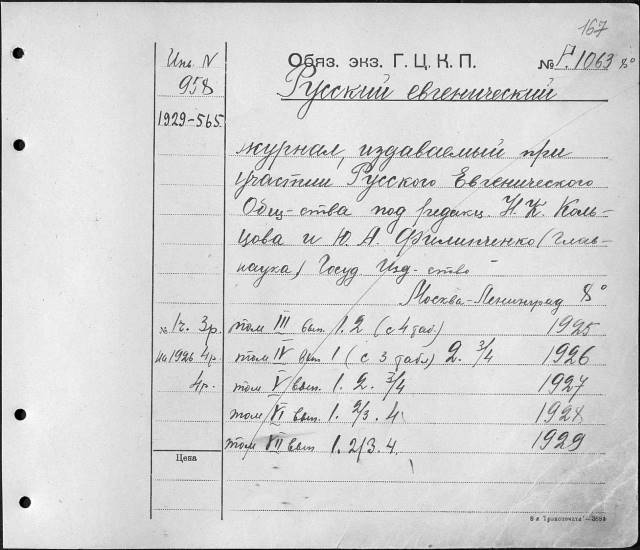 167
Инв. N
958
1929-565.
Обяз. экз. Г. Ц. К. П.
№ Р. 1063 8°
Русский евгенический
журнал, издаваемый при
участии Русского Евгенического
Общ-ства под редакц. Н. К. Коль-
цова и Ю. А. Филипченко (Глав-
наука) Госуд Изд-ство
Москва-Ленинград 8°
№ 1г. 3р. том III вып. 1. 2 (с 4 таб.) 1925
на 1926 4р. том IV вып 1 (с 3 табл) 2. 3/4 1926
4р. том V вып. 1. 2. 3/4 1927
том VI вып. 1. 2/3. 4 1928
том VII вып 1. 2/3. 4. 1929
Цена